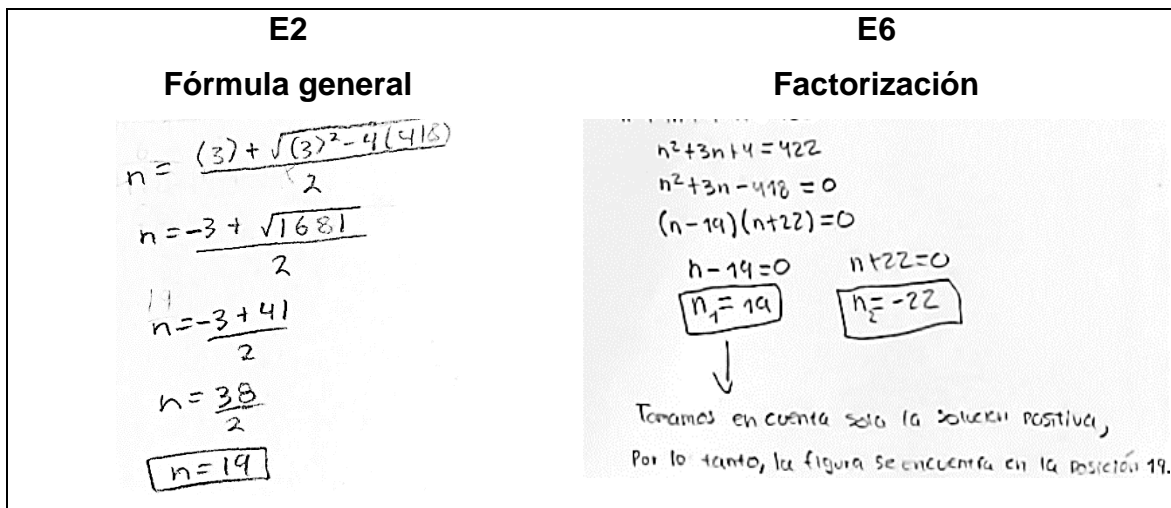 E2
Fórmula general
n = (3) + √(3)² - 4(418)
2
n = -3 + √1681
2
19
n = -3 + 41
2
n = 38
2
n = 19
E6
Factorización
n²+3n+4=422
n²+3n-418=0
(n-19)(n+22)=0
n-19=0 n+22=0
n₁=19 n₂=-22
Tomamos en cuenta solo la solución positiva,
Por lo tanto, la figura se encuentra en la posición 19.